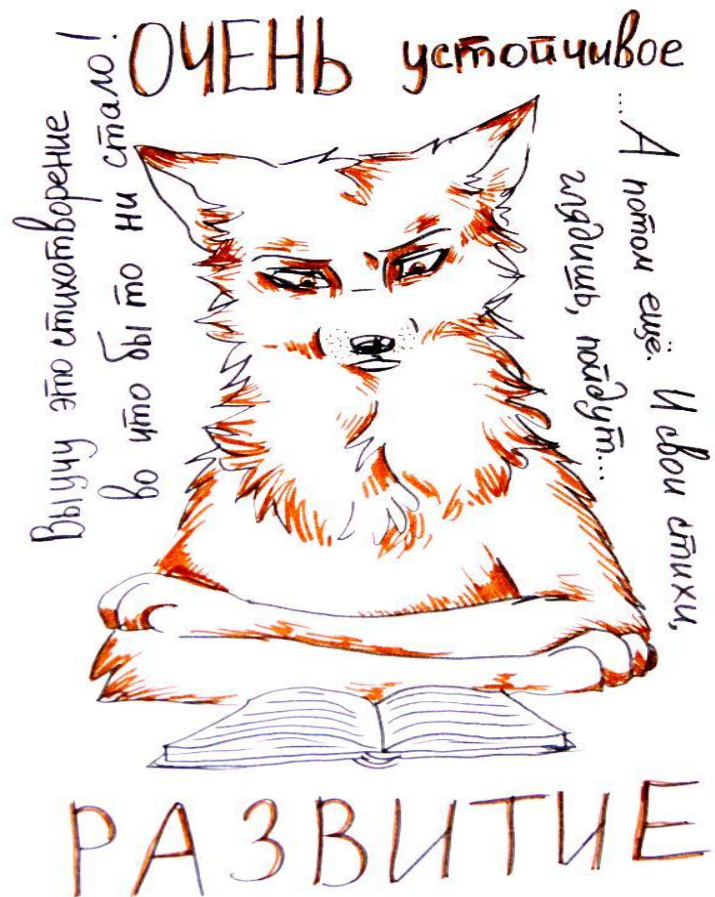 ОЧЕНЬ устойчивое
Выучу это стихотворение
во что бы то ни стало!
...А потом ещё. И свои стихи,
глядишь, пойдут...
РАЗВИТИЕ